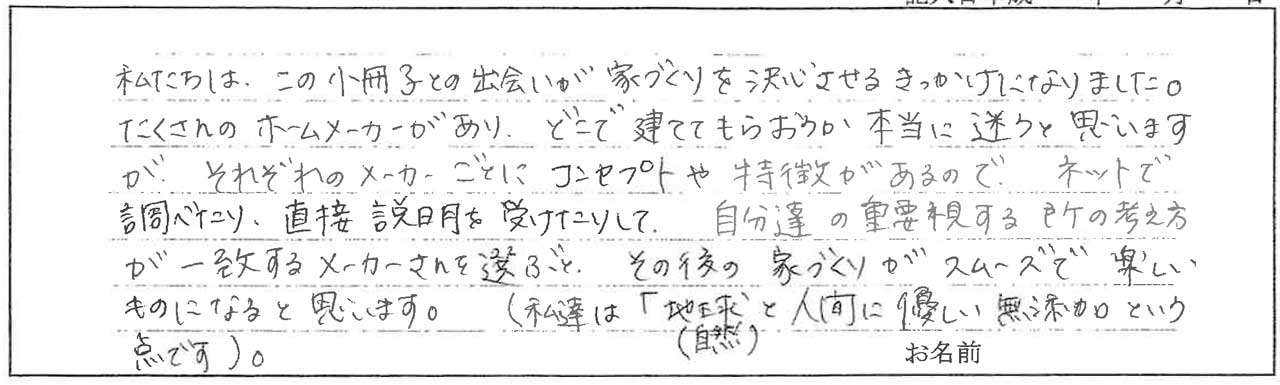 私たちは、この小冊子との出会いが家づくりを決心させるきっかけになりました。
たくさんのホームメーカーがあり、どこで建ててもらおうか本当に迷うと思います
が、それぞれのメーカーごとにコンセプトや特徴があるので、ネットで
調べたり、直接説明を受けたりして、自分達の重要視する所の考え方
が一致するメーカーさんを選ぶと、その後の家づくりがスムーズで楽しい
ものになると思います。(私達は「地球と人間に優しい無添加」という
(自然)
点です)。
お名前